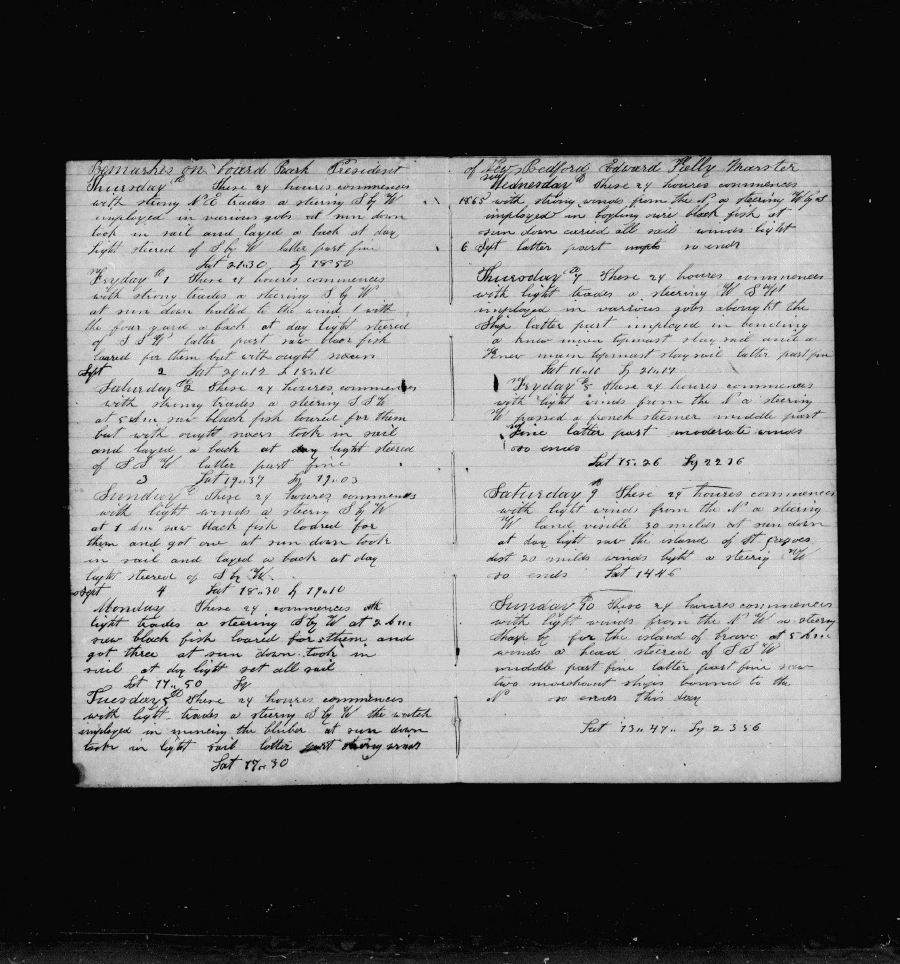 Remarks on board Bark President
Thursday th These 24 houres commences
with strong N E trades a steering S by W
employed in various gobs at sun down
took in sail and layed a back at day
light steered of S by W latter part fine
Lat 21..30 Lg 18 50
Fryday th 1 These 24 houres commences
with strong trades a steering S by W
at sun down hulled to the wind with
the four yard a back at day light steered
of S S W latter part saw black fish
loared for them but with ought success
Sept 2 Lat 20..12 L 18..10
Saturday th 2 These 24 houres commences
with strong trades a steering S S W
at 5 A m saw black fish loared for them
but with ought sucess took in sail
and layed a back at day light steered
of S S W latter part fine
3 Lat 19..37 Lg 19..03
Sunday These 24 houres commences
with light winds a steering S by W
at 1 saw black fish loared for
them and got one at sun down took
in sail and layed a back at day
light steered of S by W
Sept 4 Lat 18..30 L 19..10
Monday These 24 commences
light trades a steering S by W at 2 A m
saw black fish loared for them and
got three at sun down took in
sail at day light set all sail
Lat 17..50 Lg
Tuesday 5th These 24 houres commences
with light trades a steering S by W the watch
imployed in mincing the bluber at sun down
took in light sail latter part strong winds
Lat 17..30
of New Bedford Edward Kelly Marster
Wednesday These 24 houres commences
1865 with strong winds from the N a steering W by S
imployed in boyling sure black fish at
sun down caried all sail winds light
6 Sept latter part so ends
Thursday 7 These 24 houres commences
with light trades a steering W S W
imployed in varrious gobs abourght the
Ship latter part imployed in bending
a knew main topmast stay sail and a
knew main topmast staysail latter part fine
Lat 16..10 Lg 21..17
Fryday 8 These 24 houres commences
with light winds from the N a steering
W passed a french steamer middle part
fine latter part moderate winds
so ends
Lat 15..26 Lg 22 36
Saturday 9 These 24 houres commences
with light winds from the N a steering
W land visible 30 milds at sun down
at day light saw the island of St
dist 20 milds winds light a steerig W
so ends Lat 14 46
Sunday 10 These 24 houres commences
with light winds from the N W a steering
Sharp by for the island of bravo at 5 A m
winds a head steered of S S W
middle part fine latter part fine saw
two merchant ships bound to the
N so ends this day
Lat 13..47.. Lg 23 56